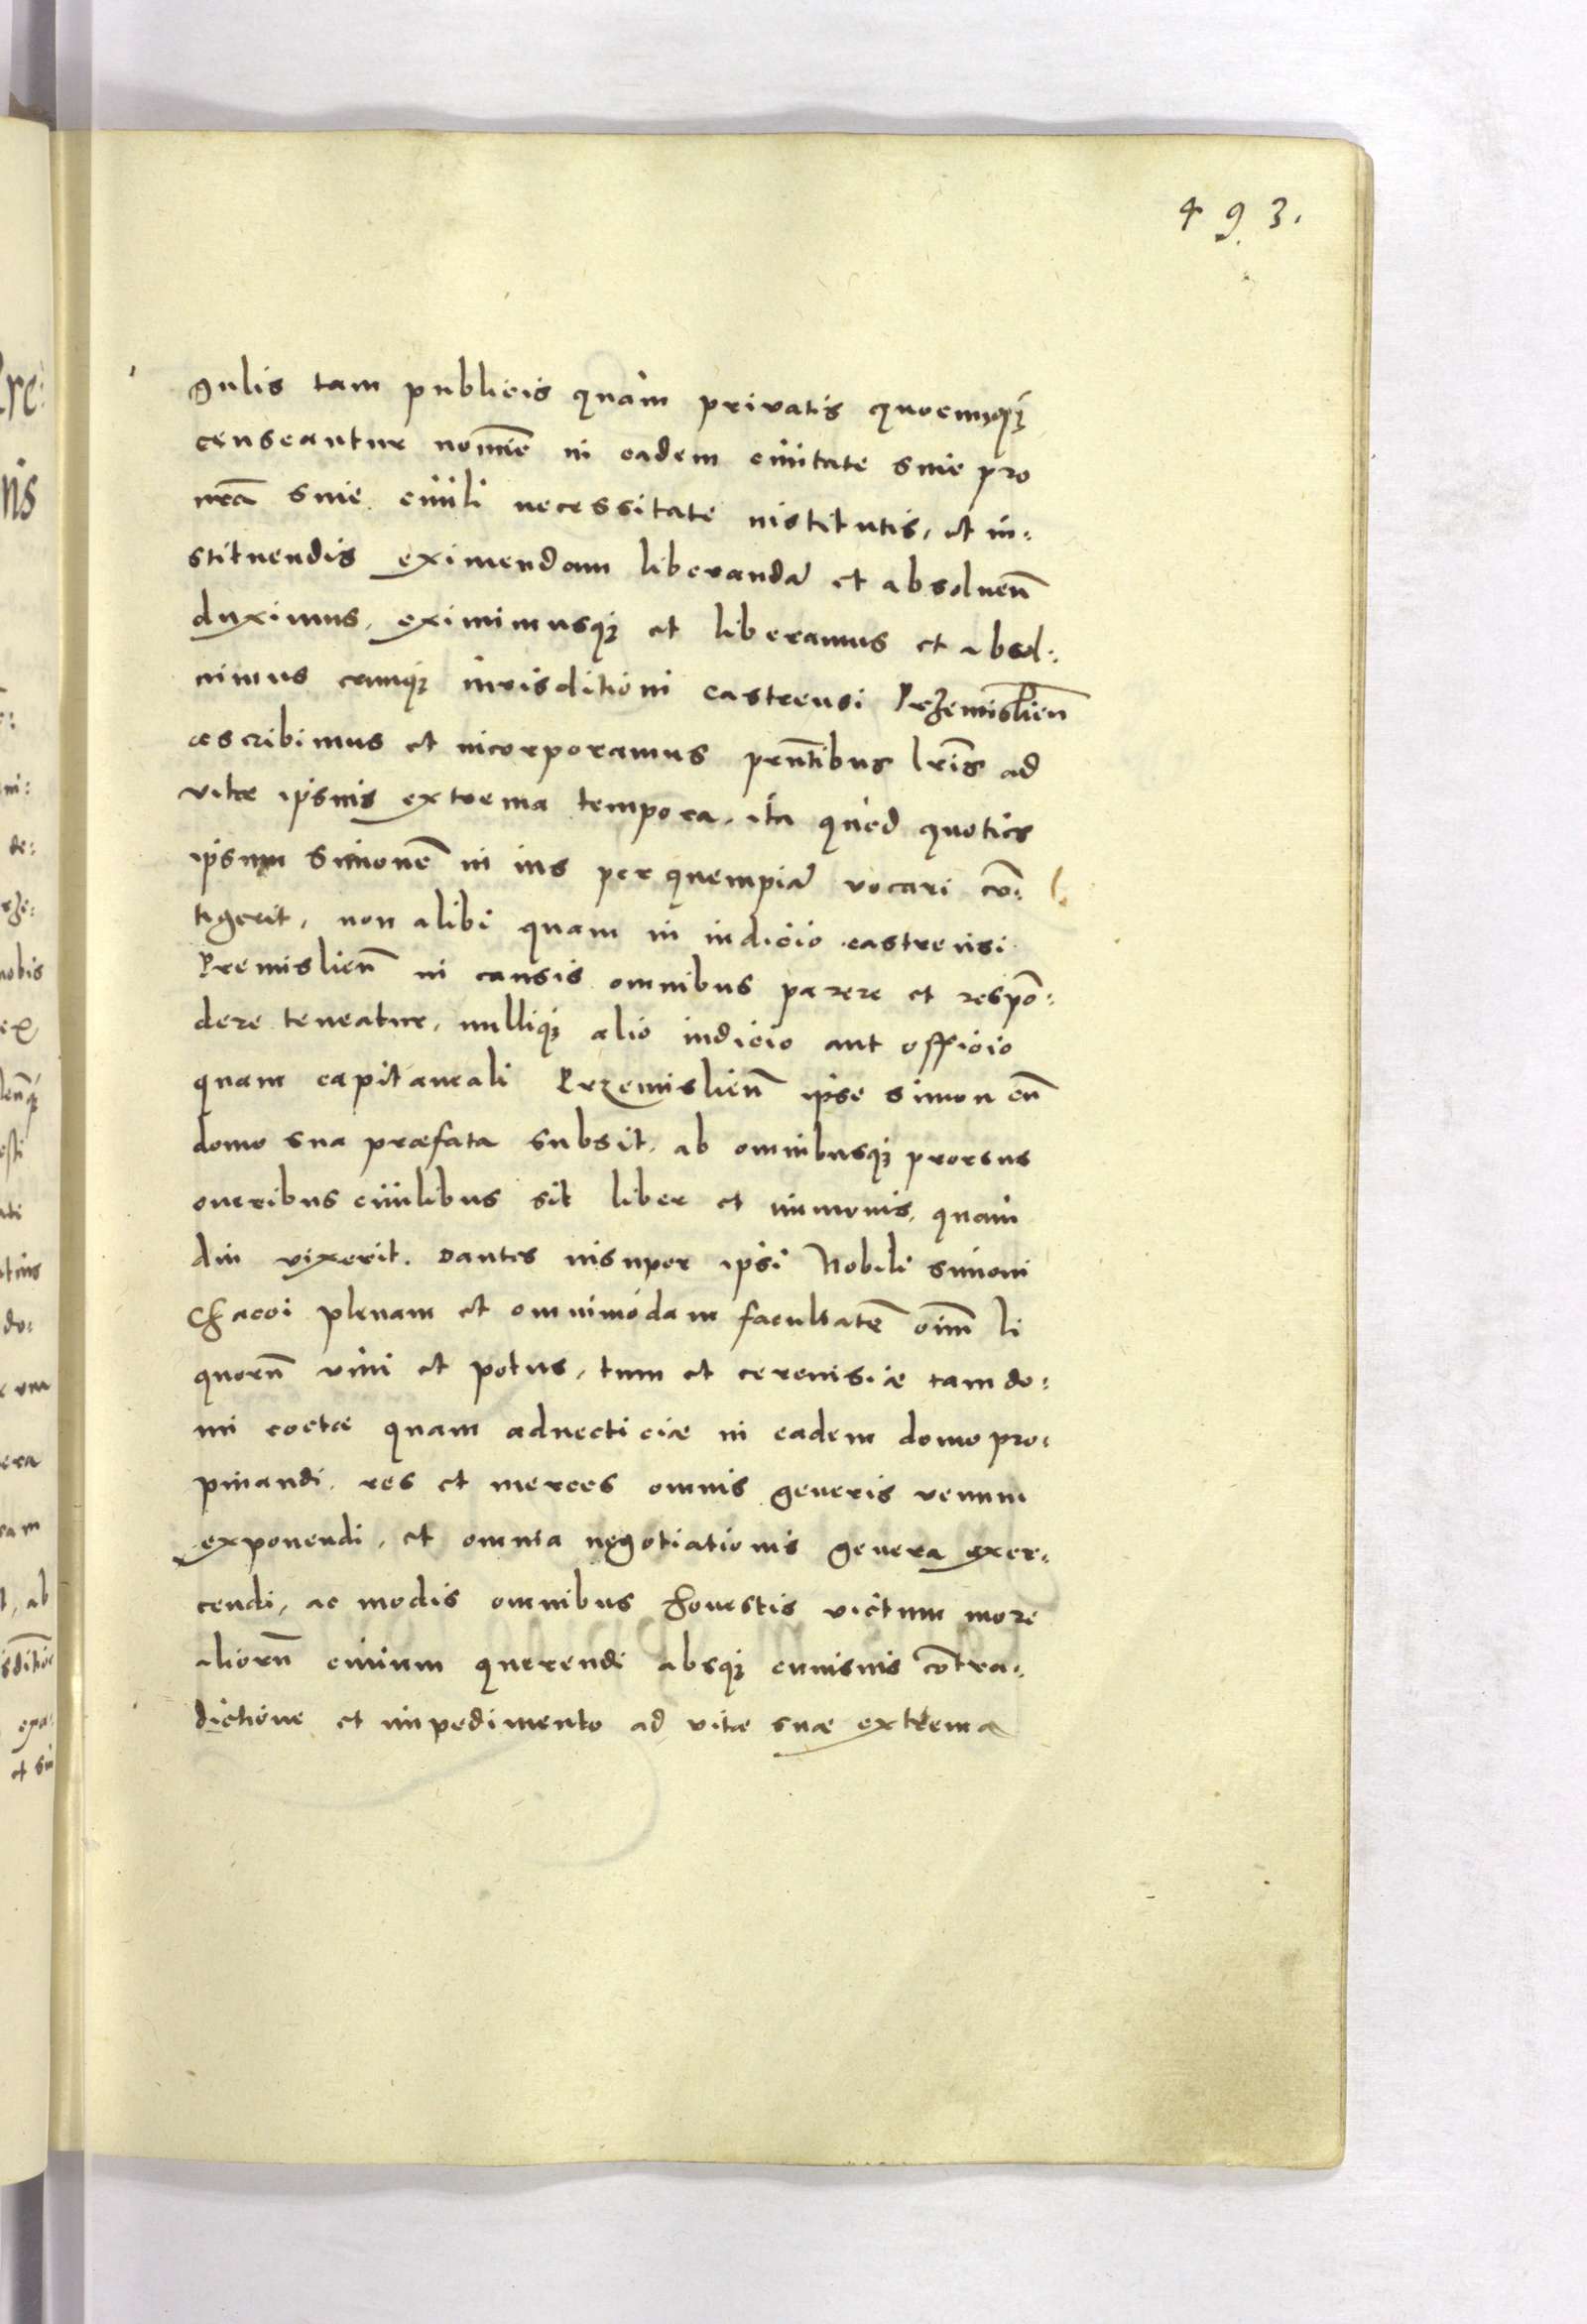 493.
dulis tam publicis quam privatis quocunqꝫ
censeantur noīe in eadem civitate sive pro
nrā sive civili necessitate institutis, et in:
stituendis eximendam liberandā et absoluen̄
duximus, eximimusqꝫ et liberamus et absol:
vimus eamqꝫ iurisditioni castrensi Przemislien̄
ascribimus et incorporamus prn̄tibus lrīs ad
vitæ ipsius extrema tempora, ita quod quoties
ipsum Simonē in ius per quempiā vocari cō:
tigerit, non alibi quam in iudicio castrensi
Premislien̄ in causis omnibus parere et respō:
dere teneatur, nulliqꝫ alio iudicio aut officio
quam capitaneali Przemislien̄ ipse Simon cū
domo sua præfata subsit, ab omnibusqꝫ prorsus
oneribus civilibus sit liber et immunis, quam
diu vixerit. Dantes insuper ipsi Nobili Simoni
Chacoi plenam et omnimodam facultatē oīm li
quorū vini et potus, tum et cerevisiæ tam do:
mi coctæ quam advecticiæ in eadem domo pro:
pinandi, res et merces omnis generis venum
exponendi, et omnia negotiationis genera exer:
cendi, ac modis omnibus honestis victum more
aliorū civium querendi absqꝫ cuiusvis cōtra:
dictione et impedimento ad vitæ suæ extrema